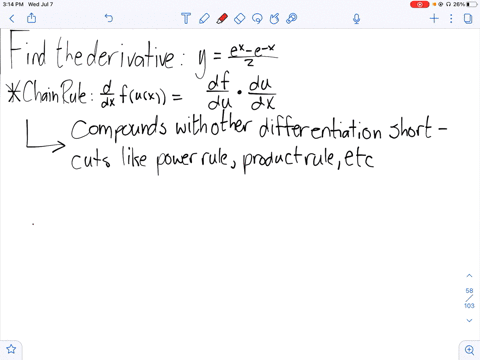 3:14 PM Wed Jul 7
26%
Find the derivative: y = \frac{e^x-e^{-x}}{2}
*Chain Rule: \frac{d}{dx} f(u(x)) = \frac{df}{du} \cdot \frac{du}{dx}
Compounds with other differentiation short-
cuts like power rule, product rule, etc
58
/
103